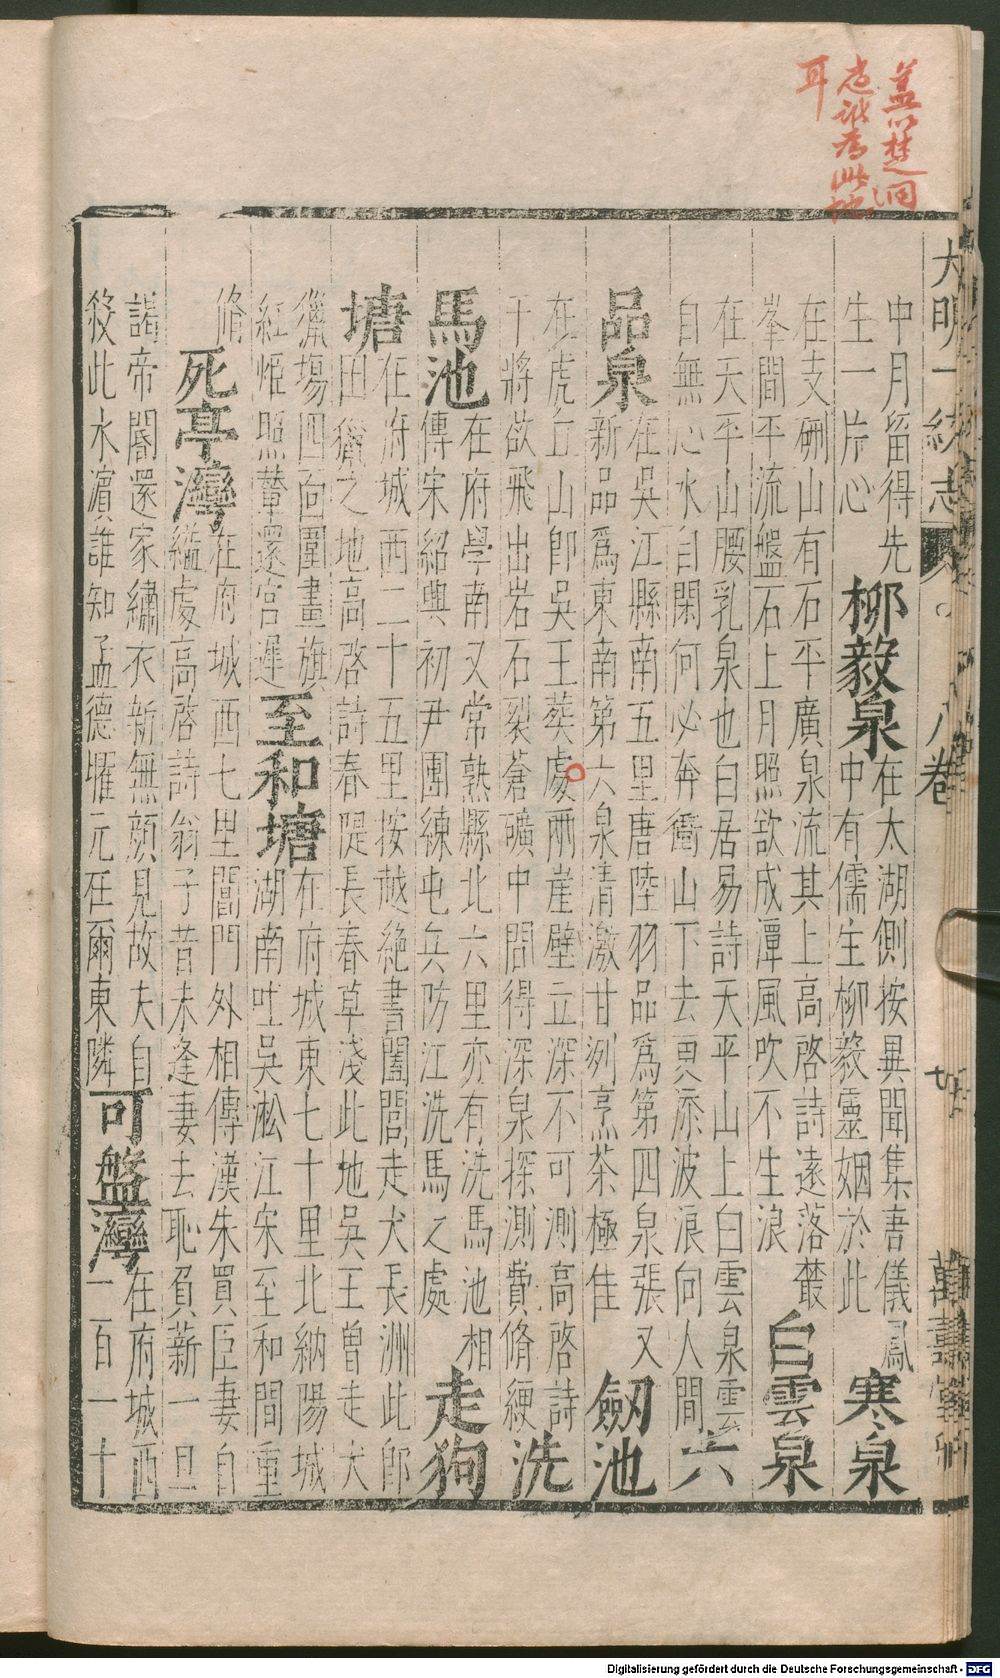 蓋以楚洞
庭訛爲此地
耳
大明一統志
八卷
萬壽堂刊
中月留得先
生一片心
柳毅泉
在太湖側按異聞集唐儀鳳
中有儒生柳毅靈姻於此
寒泉
在支硎山有石平廣泉流其上高啓詩遠落叢
峯間平流盤石上月照欲成潭風吹不生浪
白雲泉
在天平山腰乳泉也白居易詩天平山上白雲泉雲
自無心水自閑何必奔衝山下去更添波浪向人間
六
品泉
在吳江縣南五里唐陸羽品爲第四泉張又
新品爲東南第六泉清激甘洌烹茶極佳
劒池
在虎丘山即吳王葬處兩崖壁立深不可測高啓詩
干將欲飛出岩石裂蒼礦中間得深泉探測費脩綆
洗
馬池
在府學南又常熟縣北六里亦有洗馬池相
傳宋紹興初尹團練屯兵防江洗馬之處
走狗
塘
在府城西二十五里按越絶書闔閭走犬長洲此即
田獵之地高啓詩春隄長春草淺此地吳王曾走犬
獵塲四面圍畫旗
紅姬照輦還宮遲
至和塘
在府城東七十里北納陽城
湖南吐吳淞江宋至和間重
脩
死亭灣
在府城西七里閶門外相傳漢朱買臣妻自
縊處高啓詩翁子昔未逢妻去恥負薪一旦
謁帝閽還家繡衣新無顔見故夫自
殺此水濵誰知孟德曜元在爾東隣
可盤灣
在府城西
二百一十
Digitalisierung gefördert durch die Deutsche Forschungsgemeinschaft - DFG